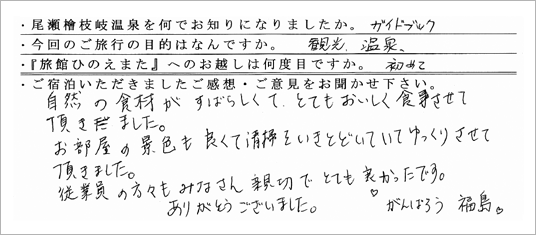 ・尾瀬檜枝岐温泉を何でお知りになりましたか。 ガイドブック
・今回のご旅行の目的はなんですか。 観光、温泉、
・『旅館ひのえまた』へのお越しは何度目ですか。 初めて
・ご宿泊いただきましたご感想・ご意見をお聞かせ下さい。
自然の食材がすばらしくて、とてもおいしく食事させて
頂きました。
お部屋の景色も良くて清掃もいきとどいていてゆっくりさせて
頂きました。
従業員の方々もみなさん親切でとても良かったです。
ありがとうございました。 がんばろう福島。